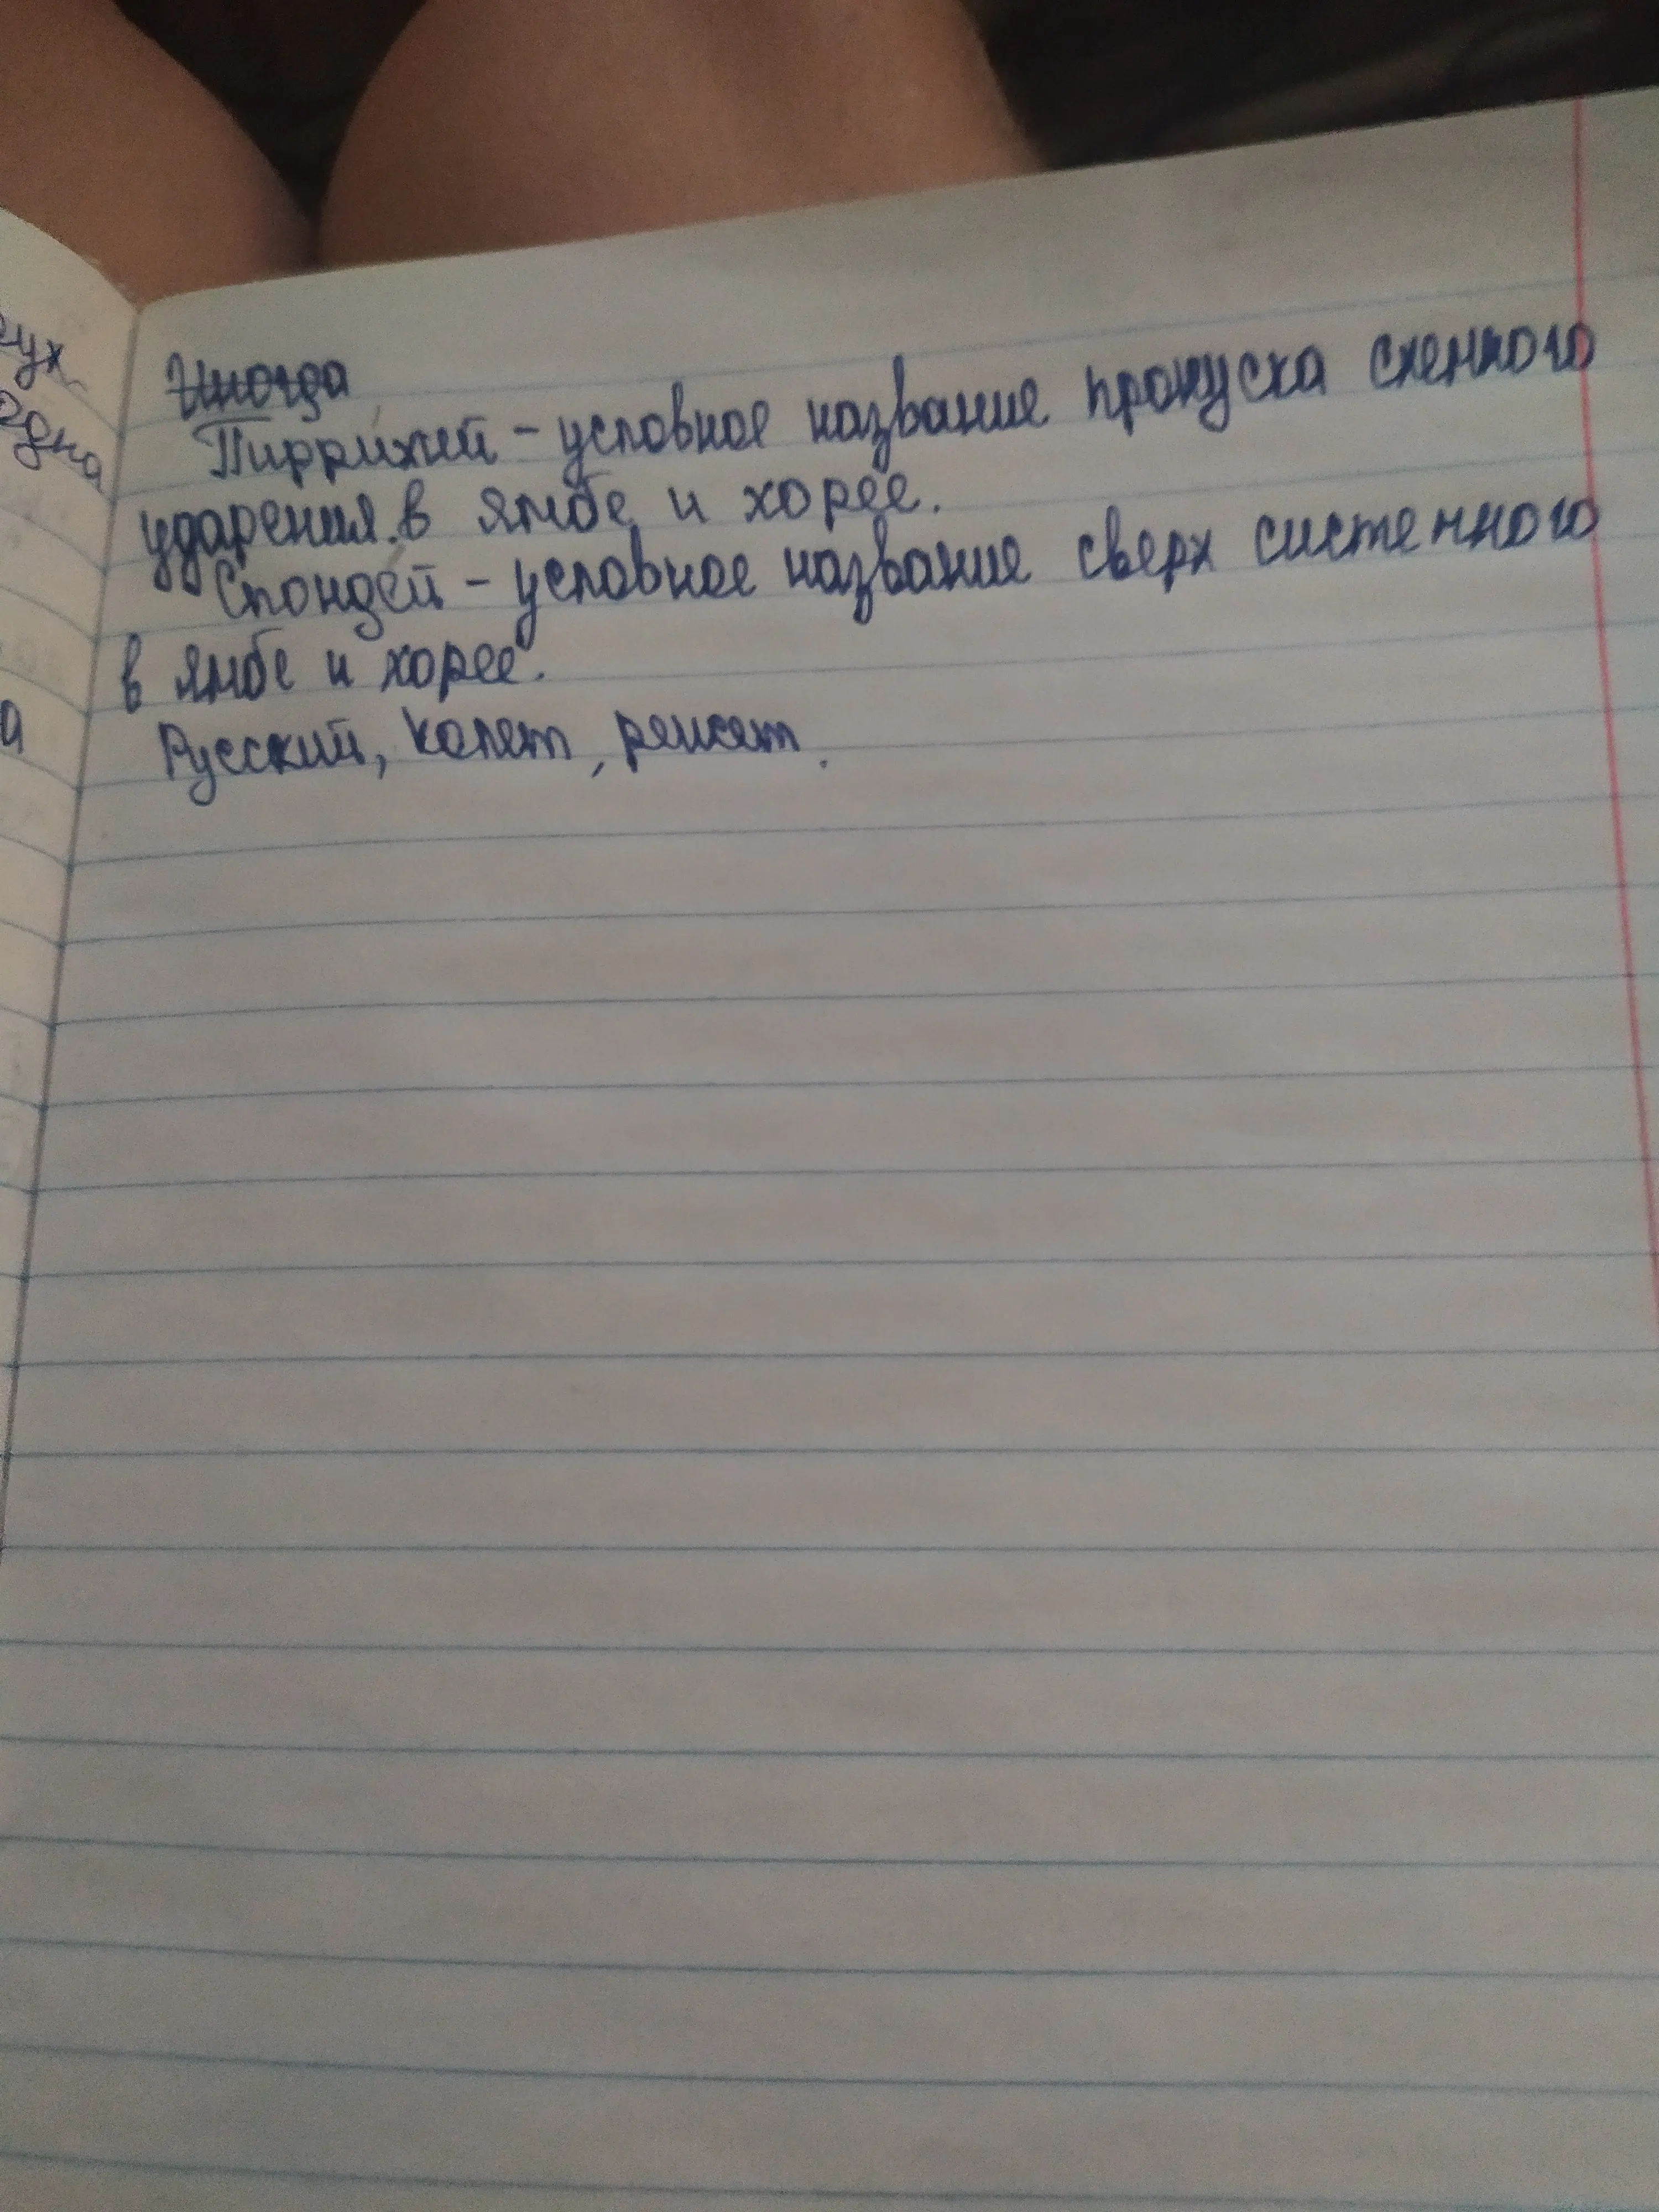 ух
одна
а
Иногда
Пиррихий – условное название пропуска схемного
ударения в ямбе и хорее.
Спондей – условное название сверх системного
в ямбе и хорее.
Русский, калет,